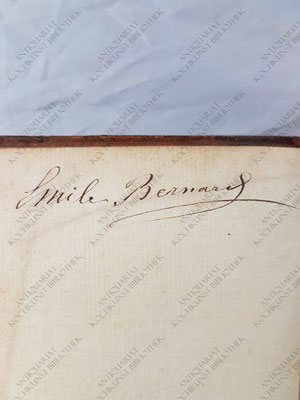 Emile Bernard
ANTIQUARIAT
KOCHKUNST BIBLIOTHEK